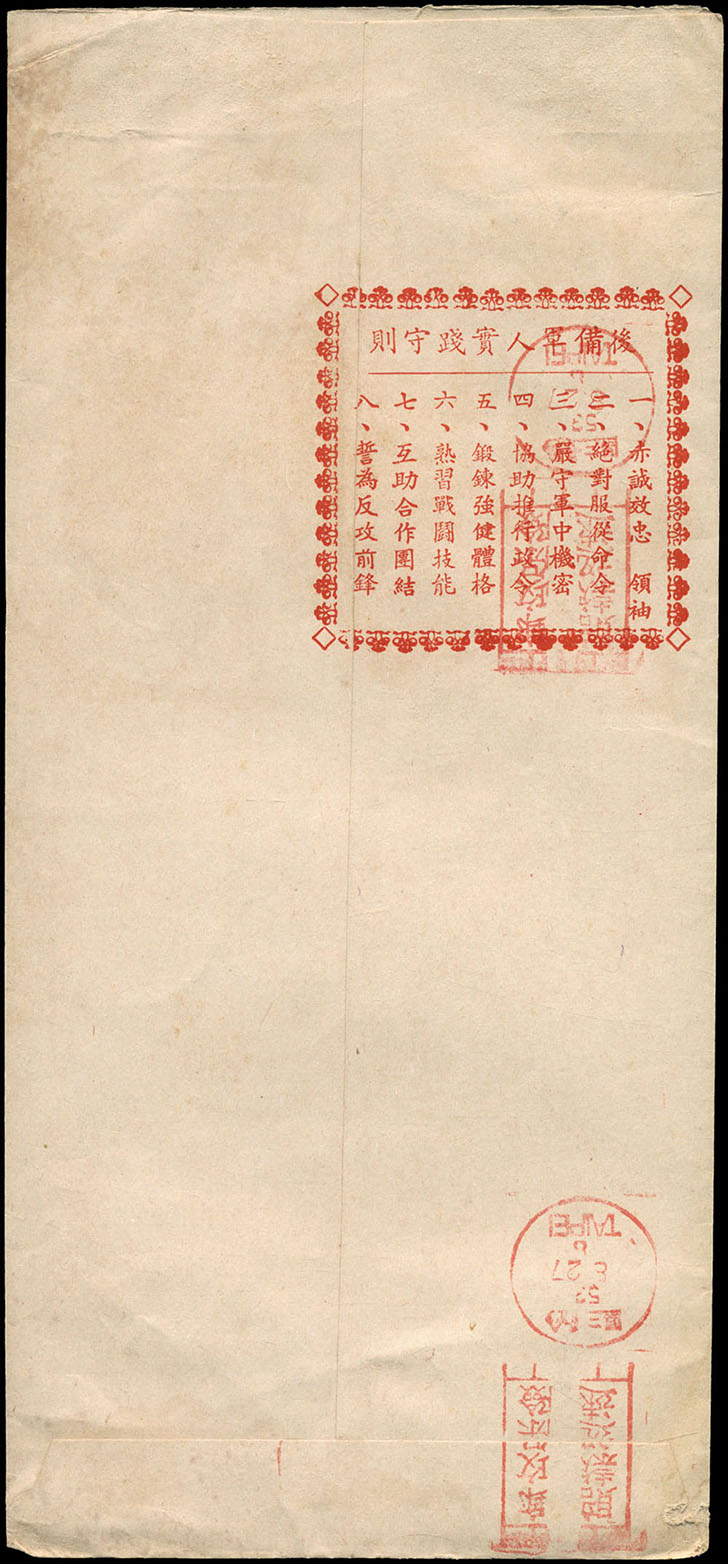 後備軍人實踐守則
一、赤誠效忠 領袖
二、絕對服從命令
三、嚴守軍中機密
四、協助推行政令
五、鍛鍊強健體格
六、熟習戰鬪技能
七、互助合作團結
八、誓為反攻前鋒
TAIPEI
TAIPEI
8 27
53